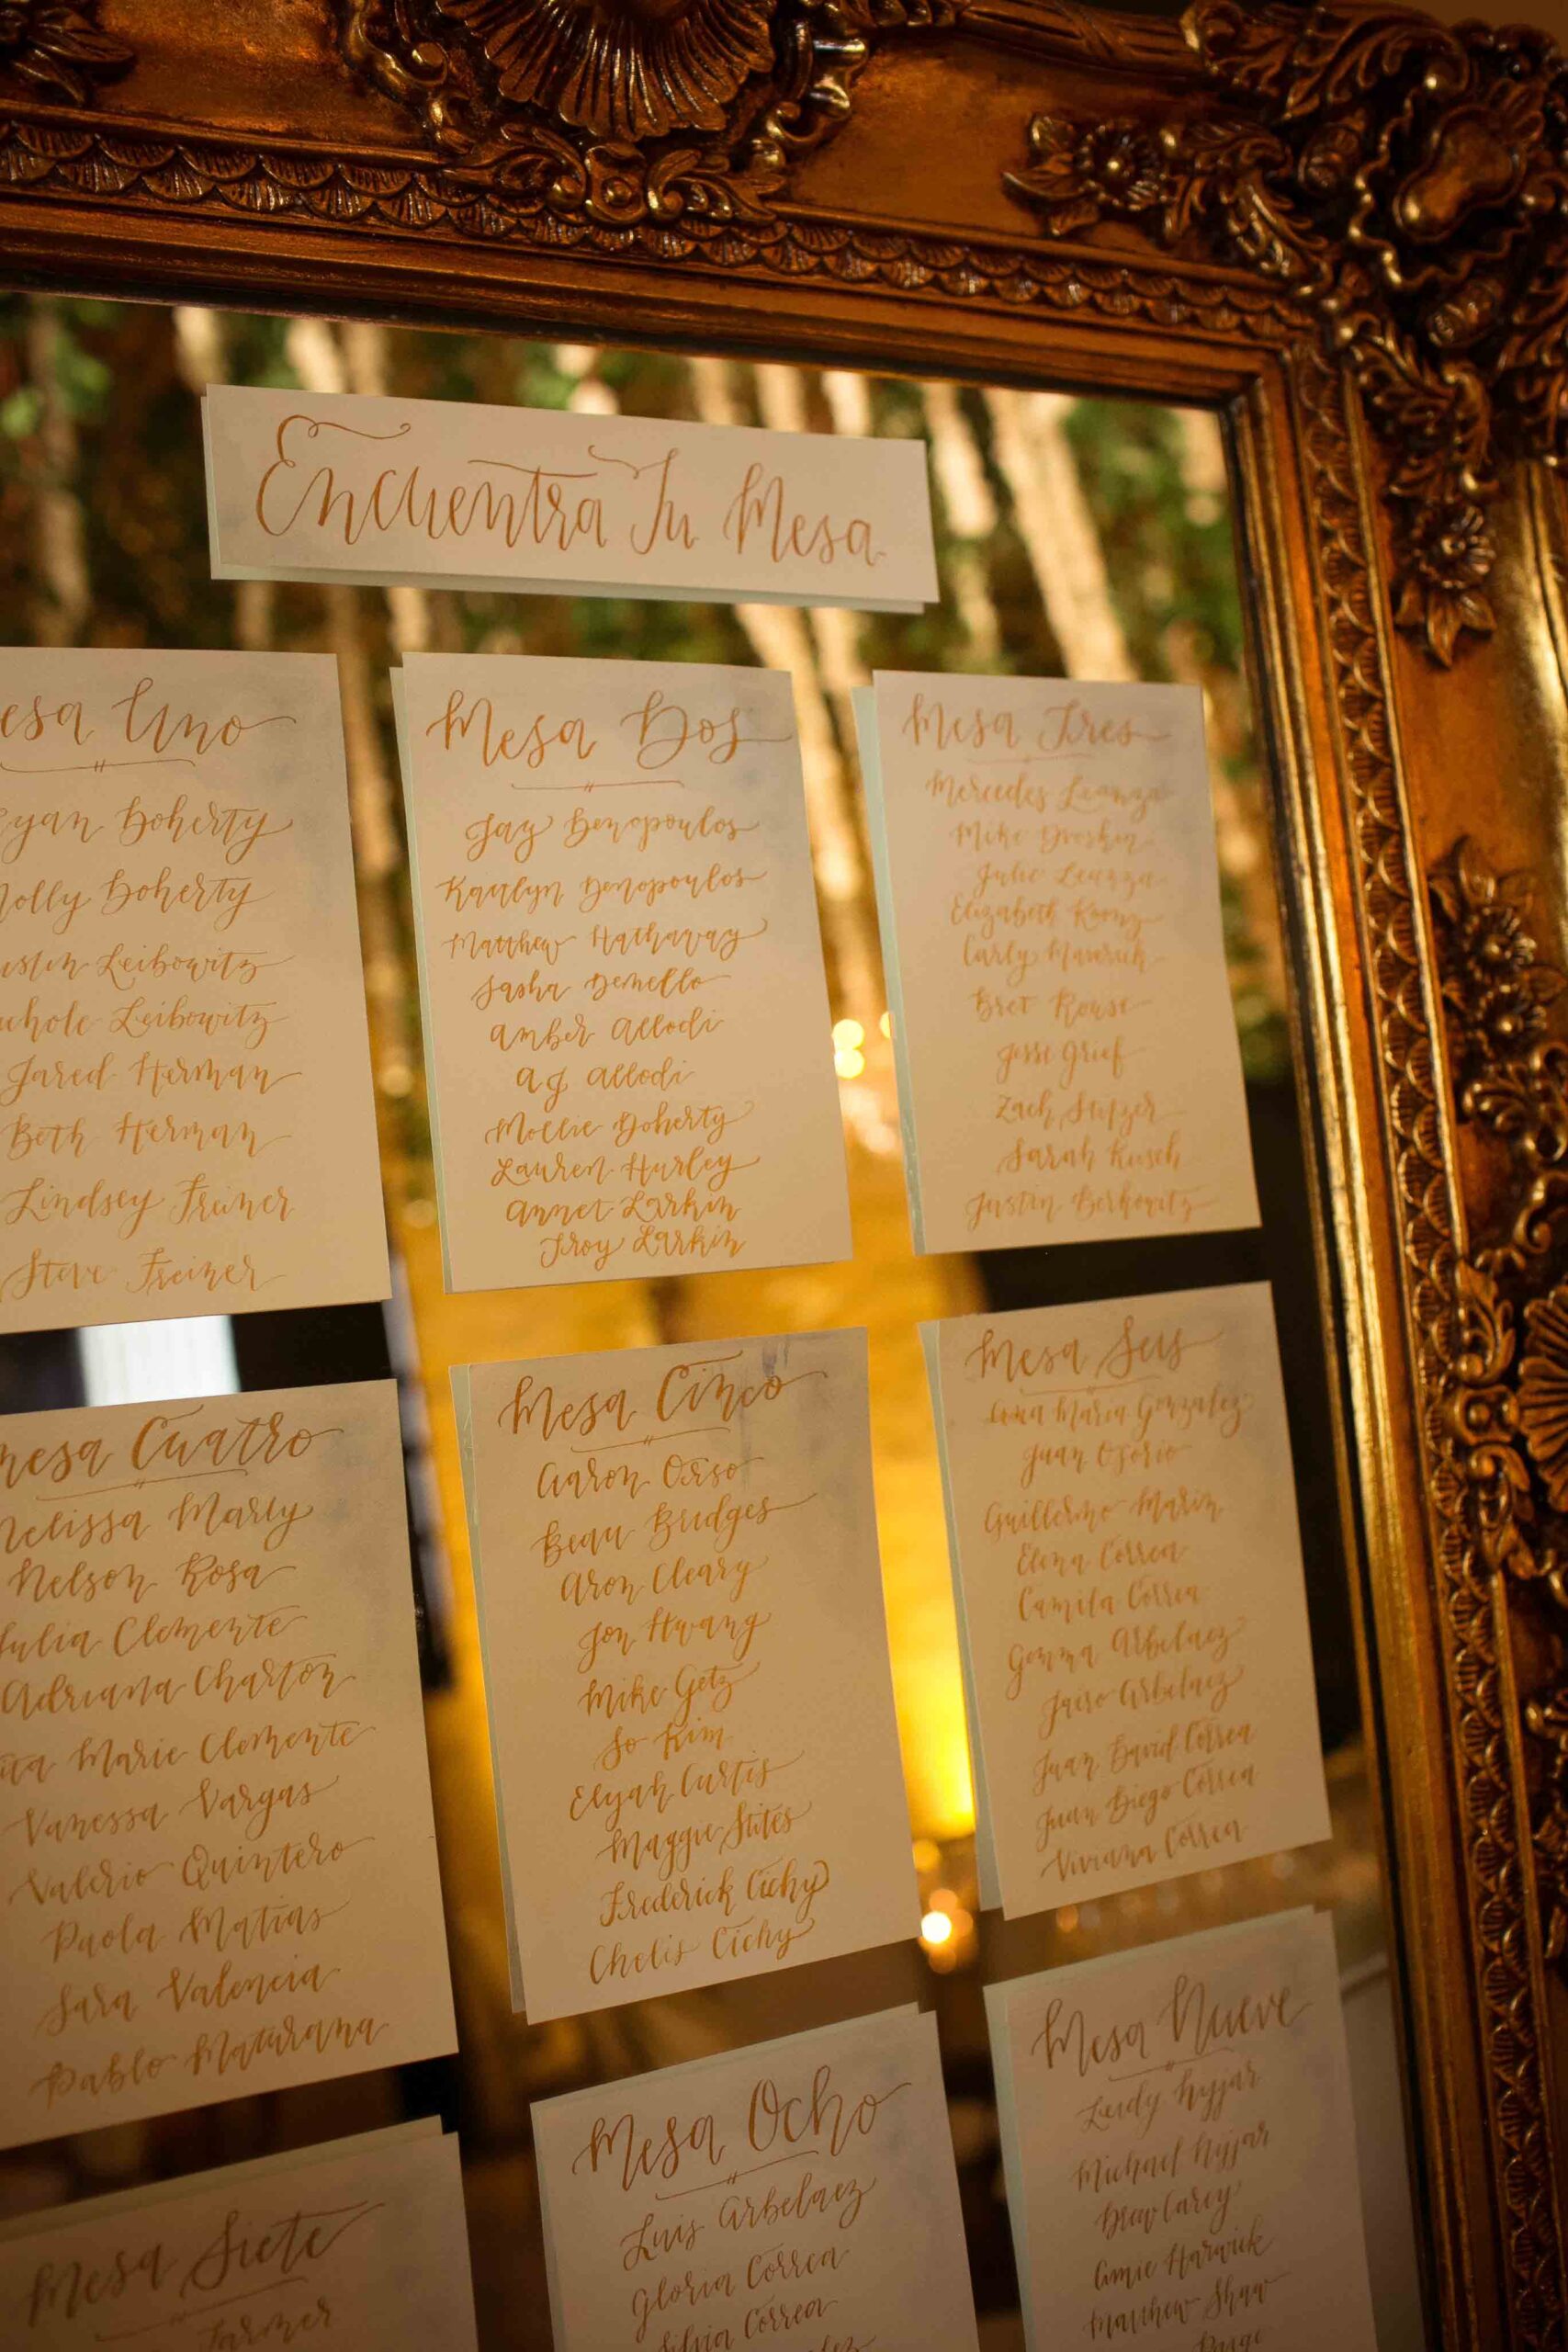 Encuentra Tu Mesa
esa Uno
yan Doherty
olly Doherty
ustin Leibowitz
chole Leibowitz
Jared Herman
Beth Herman
Lindsey Freiner
Steve Freiner
Mesa Dos
Jay Denopoulos
Kaitlyn Denopoulos
Matthew Hathaway
Sasha Demello
Amber Allodi
AJ Allodi
Mollie Doherty
Lauren Hurley
Annet Larkin
Troy Larkin
Mesa Tres
Mercedes Leanza
Mike Droshin
Julie Leanza
Elizabeth Koonz
Carly Maverick
Bret Rouse
Jesse Grief
Zach Stifzer
Sarah Kusch
Justin Berkowitz
mesa Cuatro
Melissa Marly
Nelson Rosa
Julia Clemente
Adriana Charton
Marie Clemente
Vanessa Vargas
Valerio Quintero
Paola Matias
Sara Valencia
Pablo Maturana
Mesa Cinco
Aaron Orso
Beau Bridges
Aron Cleary
Jon Hwang
Mike Getz
So Kim
Elyjah Curtis
Maggie Stites
Frederick Cichy
Chelis Cichy
Mesa Seis
Ana Maria Gonzalez
Juan Osorio
Guillermo Marin
Elena Correa
Camila Correa
Gemma Arbelaez
Jairo Arbelaez
Juan David Correa
Juan Diego Correa
Viviana Correa
Mesa Siete
Farmer
Mesa Ocho
Luis Arbelaez
Gloria Correa
Silvia Correa
dez
Mesa Nueve
Leidy Nyjar
Michael Nyjar
Drew Carey
Amie Harwick
Matthew Shaw
Paige